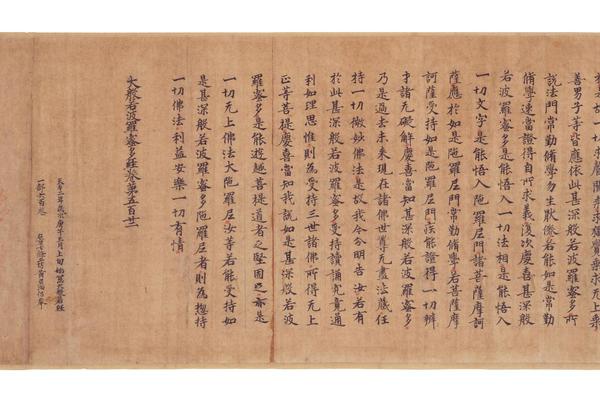 善男子等皆應依此甚深般若波羅蜜多所
說法門常勤脩學勿生猒倦若能如是常勤
脩學速當證得自所求義復次慶喜甚深般
若波羅蜜多是能悟入一切法相是能悟入
一切文字是能悟入陁羅尼門諸菩薩摩訶
薩應於如是陁羅尼門常勤脩學若菩薩摩
訶薩受持如是陁羅尼門疾能證得一切辯
才諸无礙解慶喜當知甚深般若波羅蜜多
乃是過去未來現在諸佛世尊无盡法藏任
持一切微妙佛法是故我今分明告汝若有
於此甚深般若波羅蜜多受持讀誦究竟通
利如理思惟則為受持三世諸佛所得无上
正等菩提慶喜當知我說如是甚深般若波
羅蜜多是能遊趣菩提道者之堅固足亦是
一切无上佛法大陁羅尼汝等若能受持如
是甚深般若波羅蜜多陁羅尼者則為惣持
一切佛法利益安樂一切有情
大般若波羅蜜多經卷第五百廿三
一部六百卷